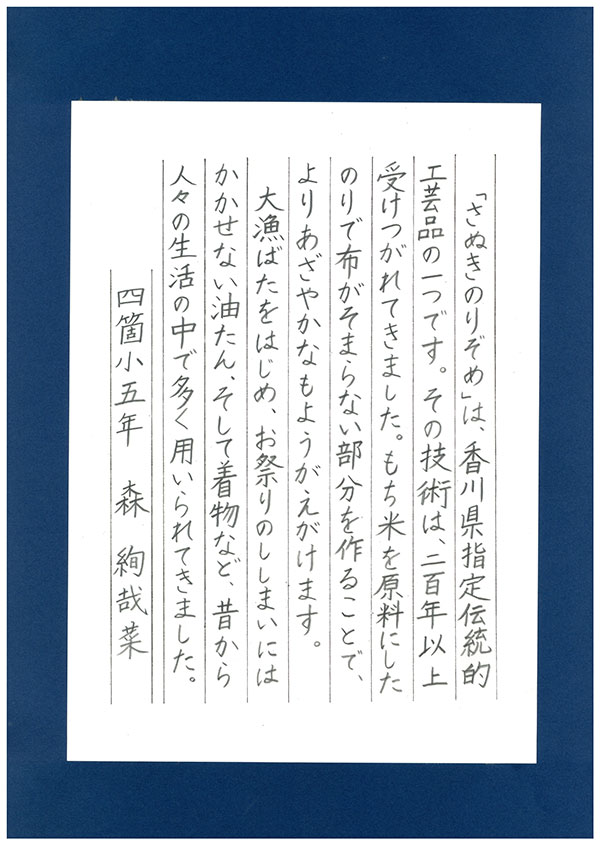 「さぬきのりぞめ」は、香川県指定伝統的
工芸品の一つです。その技術は、二百年以上
受けつがれてきました。もち米を原料にした
のりで布がそまらない部分を作ることで、
よりあざやかなもようがえがけます。
大漁ばたをはじめ、お祭りのししまいには
かかせない油たん、そして着物など、昔から
人々の生活の中で多く用いられてきました。
四箇小五年 森 絢哉菜